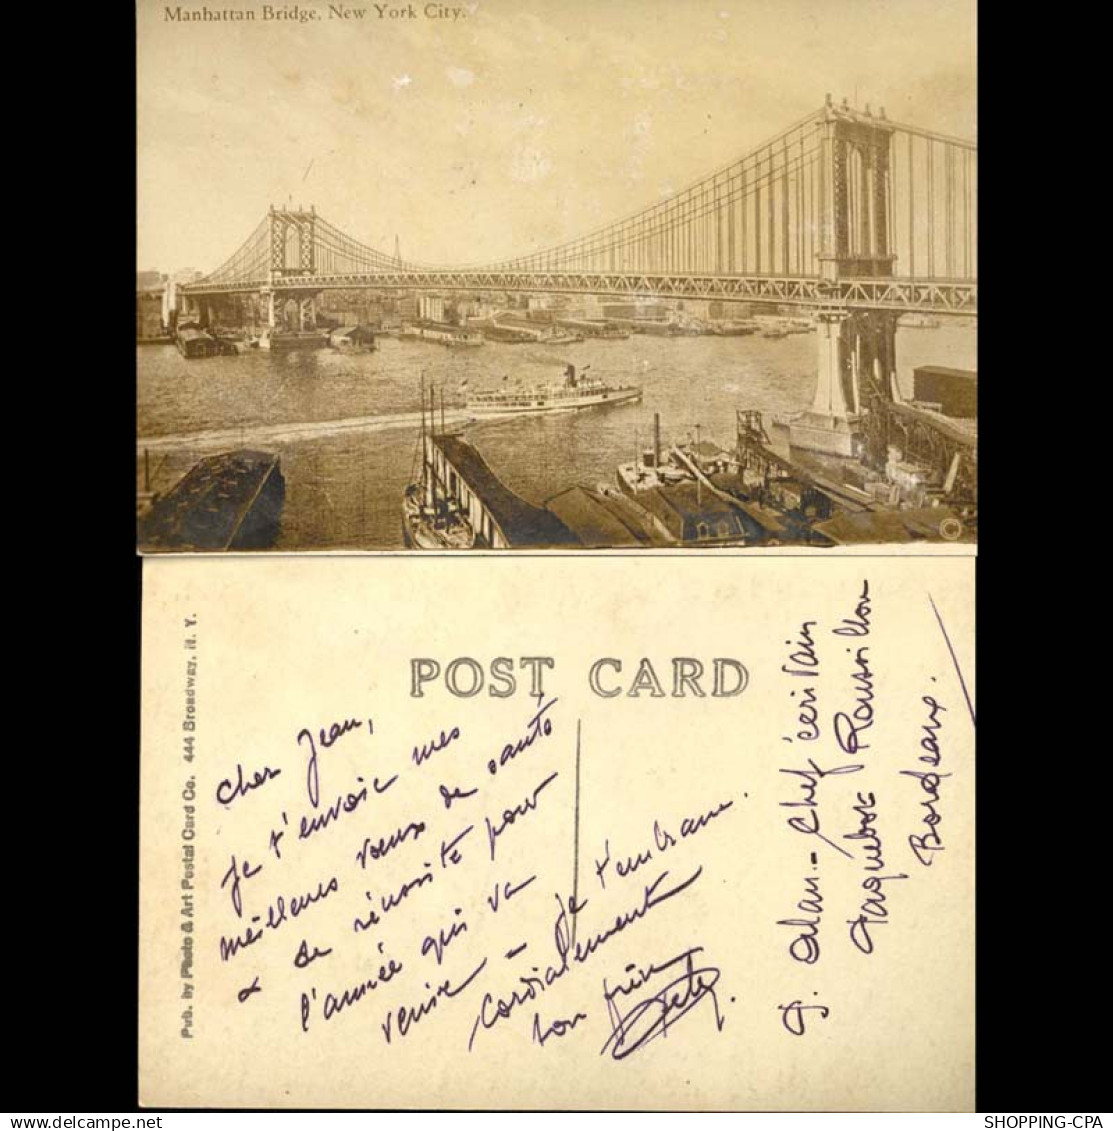 Manhattan Bridge, New York City.
POST CARD
Pub. by Photo & Art Postal Card Co. 444 Broadway, N. Y.
Cher Jean,
Je t'envoie mes
meilleurs vœux de santé
& de réussite pour
l'année qui va
venir - Je t'embrasse.
Cordialement
ton frère
J. Alan.- Chef écrivain
Paquebot Roussillon
Bordeaux.
©
SHOPPING-CPA